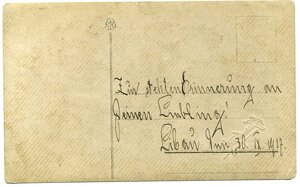 Zur steten Erinnerung an
Deinen Liebling!
Libau den 30. IX. 1917.